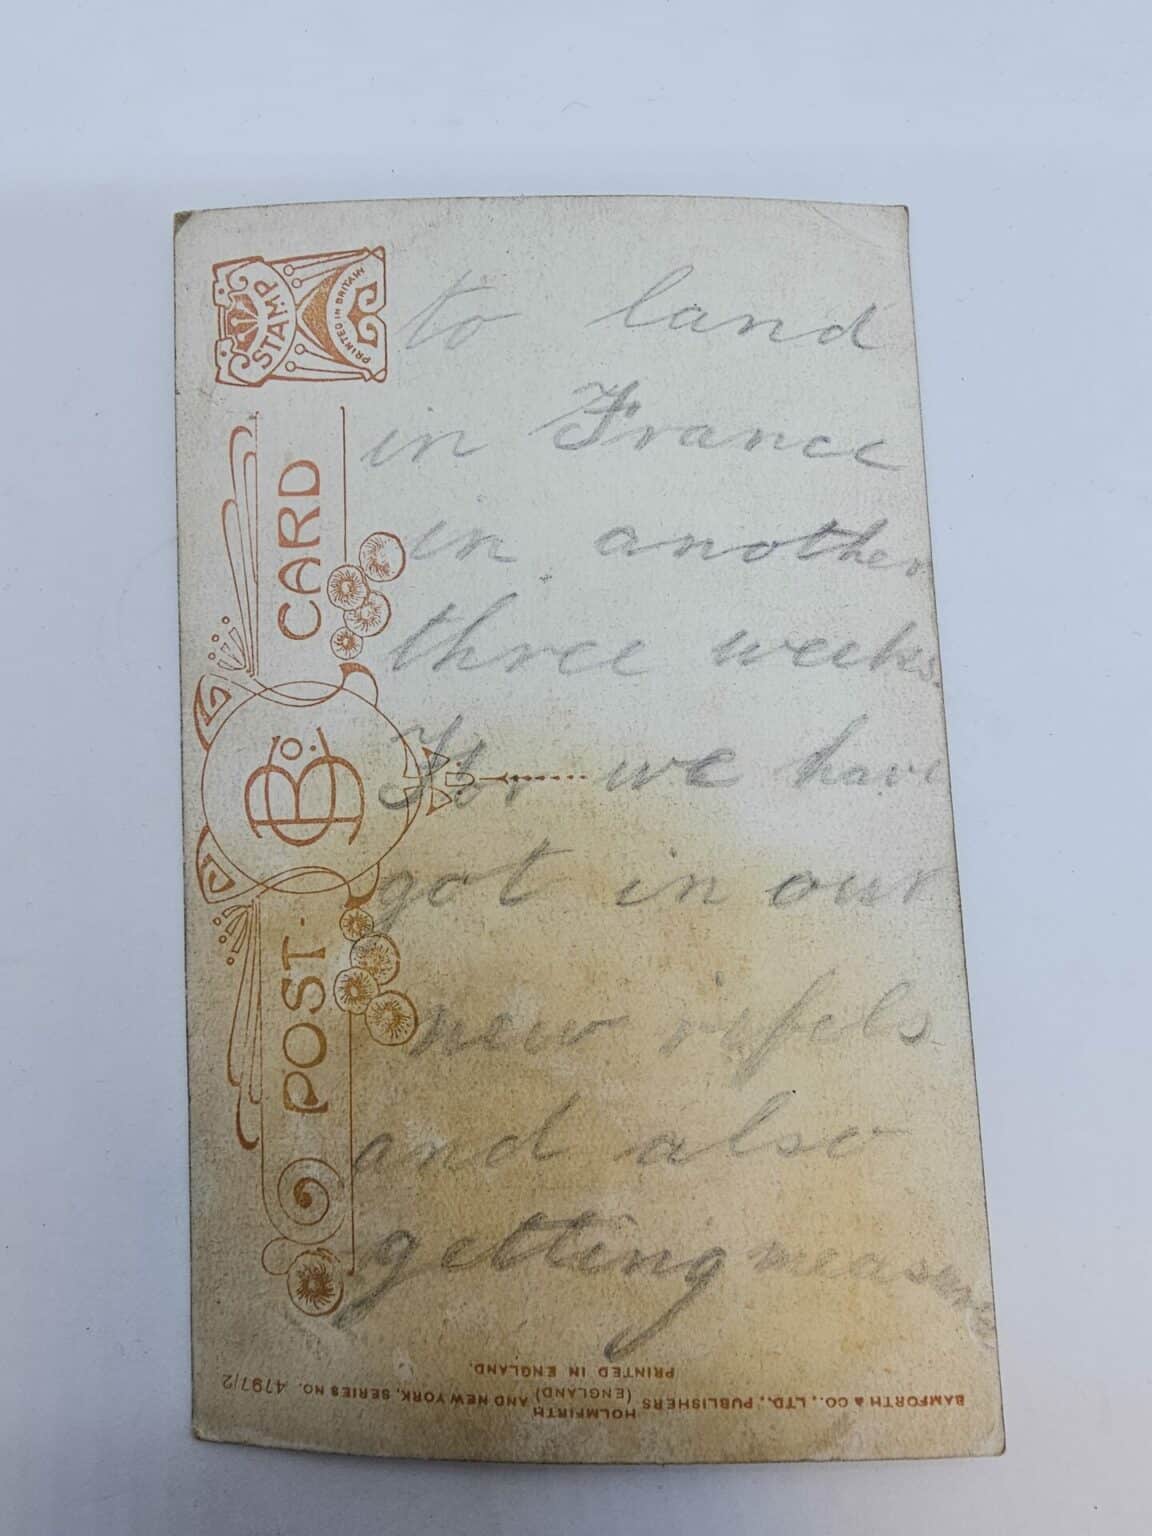 STAMP
PRINTED IN BRITAIN
POST-CARD
B Co.
to land
in France
in another
three weeks.
For we have
got in our
new rifels
and also
getting measure
BAMFORTH & CO., LTD., PUBLISHERS
HOLMFIRTH (ENGLAND) AND NEW YORK. SERIES NO. 4797/2
PRINTED IN ENGLAND.